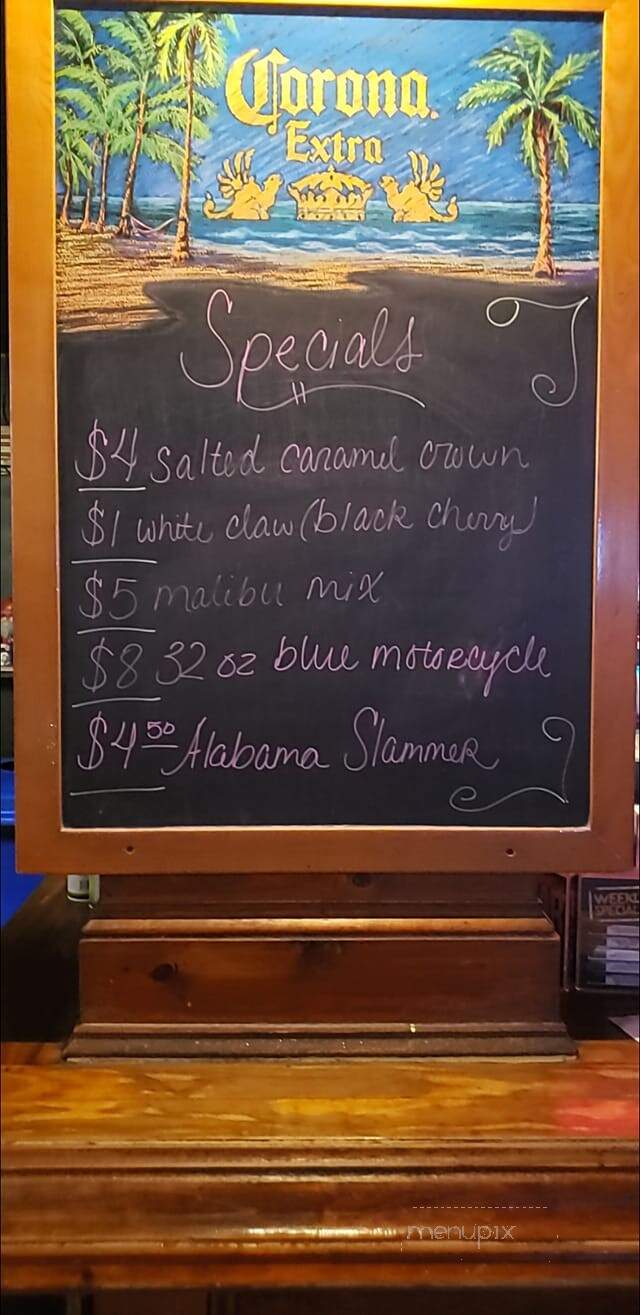 Corona.
Extra
Specials
$4 salted caramel crown
$1 white claw (black cherry)
$5 malibu mix
$8 32 oz blue motorcycle
$4 50 Alabama Slammer
WEEKL
SPECIAL
menupix